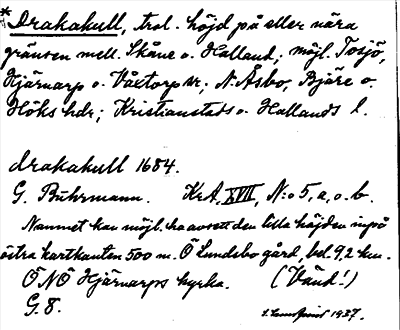 *Drakakull, trol. höjd på eller nära
gränsen mell. Skåne o. Halland; möjl. Tosjö,
Hjärnarp o. Våxtorp snr; N. Åsbo, Bjäre o.
Höks hdr; Kristianstads o. Hallands l.
drakakull 1684.
G. Buhrmann. KrA, XVII, N:o 5, a, o. b.
Namnet kan möjl. ha avsett den lilla höjden inpå
östra kartkanten 500 m. Ö Lundsbo gård, bel. 9,2 km.
ÖNÖ Hjärnarps kyrka. (Vänd!)
G. 8. 1937.